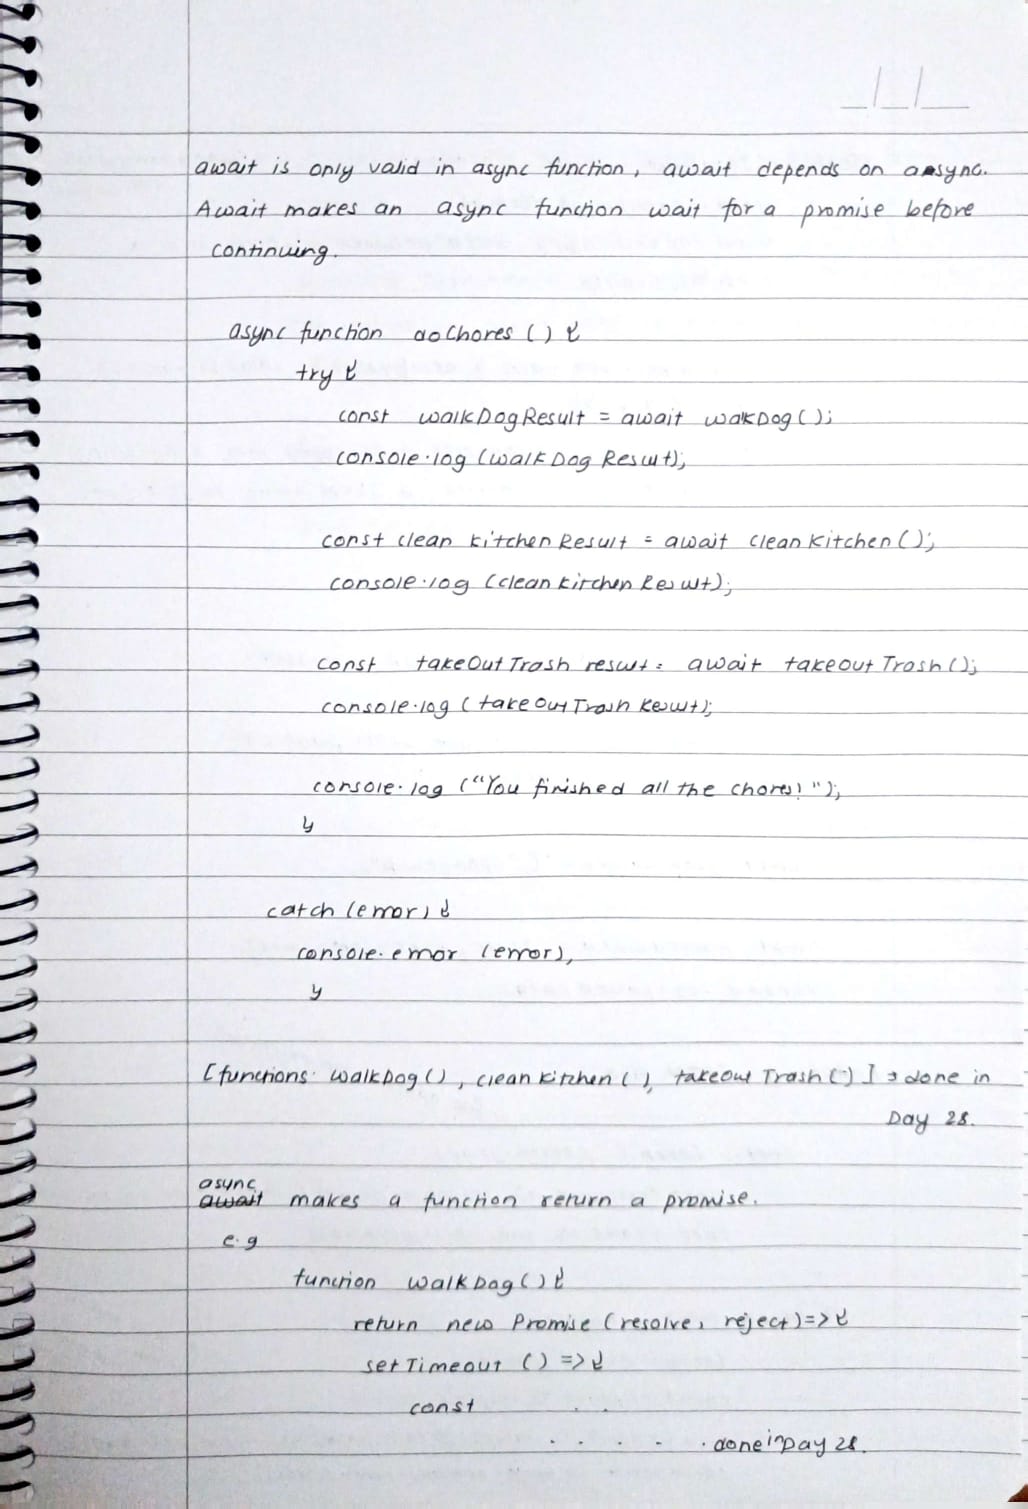 await is only valid in async function, await depends on async.
Await makes an async function wait for a promise before
continuing.
async function doChores () {
try {
const walkDogResult = await walkDog();
console.log (walkDogResult);
const cleanKitchenResult = await cleanKitchen();
console.log (cleanKitchenResult);
const takeOutTrash result = await takeoutTrash();
console.log (takeOutTrashResult);
console.log ("You finished all the chores! ");
}
catch (error) {
console.error (error);
}
[functions: walkDog(), cleankitchen(), takeoutTrash()] → done in
Day 28.
async
await makes a function return a promise.
e.g
function walkDog() {
return new Promise (resolve, reject) => {
setTimeout () => {
const . .
. . . . . . done in Day 28.